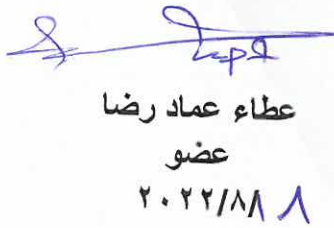 عطاء عماد رضا
عضو
٢٠٢٢/٨/١ ٨